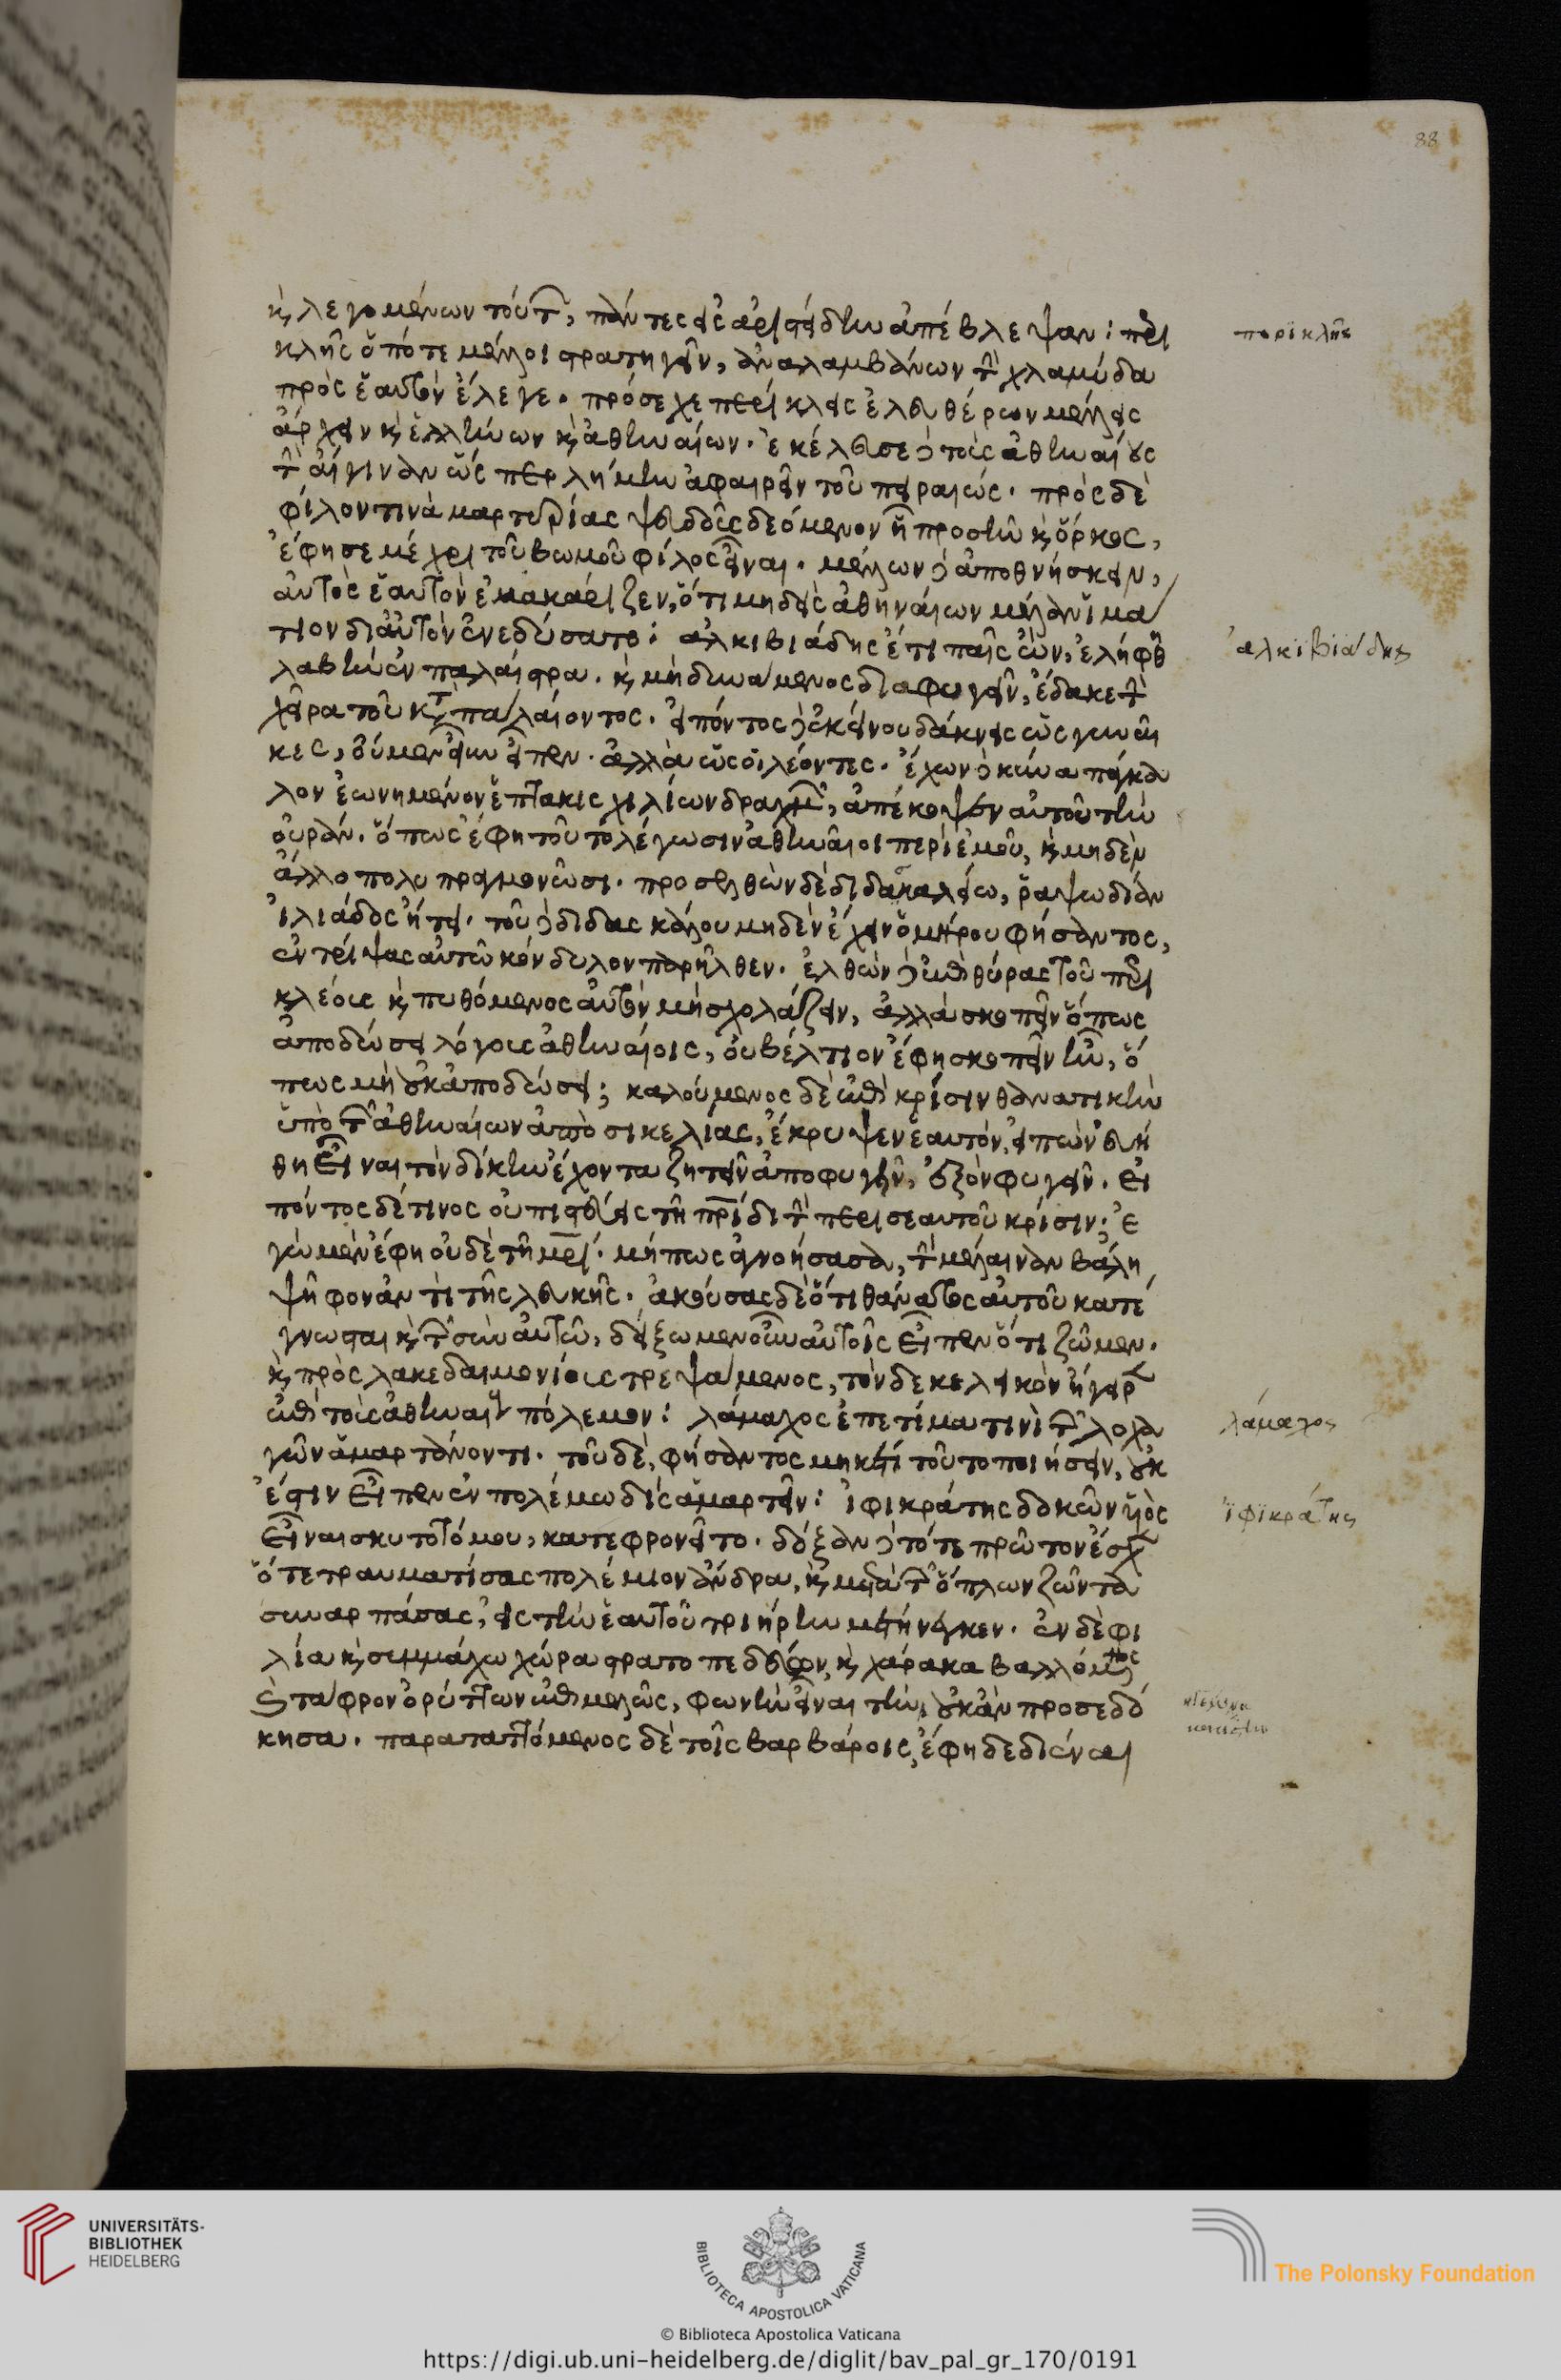 88
κ λεγομένων τούτ, πάντες εἰς ἀριστείδην ἀπέβλεψαν: περι
κλῆς ὁπότε μέλλοι στρατηγεῖν, ἀναλαμβάνων τ χλαμύδα
πρὸς ἑαυτὸν ἔλεγε. πρόσεχε περίκλεις ἐλευθέρων μέλλεις
ἄρχειν κ ἑλλήνων κ ἀθηναίων. ἐκέλευσε δὲ τοὺς ἀθηναίους
τ αἴγιναν ὡς περ λήμην ἀφαιρεῖν τοῦ πειραιῶς. πρὸς δὲ
φίλον τινὰ μαρτυρίας ψευδοῦς δεόμενον ᾗ προσῆν κ ὅρκος,
ἔφησε μέχρι τοῦ βωμοῦ φίλος εἶναι. μέλλων δὲ ἀποθνήσκειν,
αὐτὸς ἑαυτὸν ἐμακάριζεν, ὅτι μηδεὶς ἀθηναίων μέλαν ἱμά
τιον δι αὐτὸν ἐνεδύσατο: ἀλκιβιάδης ἔτι παῖς ὢν, ἐλήφθ
λαβὴν ἐν παλαίστρα. κ μὴ δυνάμενος διαφυγεῖν, ἔδακε τ
χεῖρα τοῦ κτ παλαίοντος. εἰπόντος δὲ ἐκείνου δάκνεις ὡς γυναῖ
κες, οὐ μὲν οὖν εἶπεν. ἀλλὰ ὡς οἱ λέοντες. ἔχων δὲ κύνα πάγκα
λον ἐωνημένον ἑπτακισχιλίων δραχμ, ἀπέκοψεν αὐτοῦ τὴν
οὐράν. ὅπως ἔφη τοῦτο λέγωσιν ἀθηναῖοι περὶ ἐμοῦ, κ μηδὲν
ἄλλο πολυπραγμονῶσι. προσελθὼν δὲ διδασκαλείω, ῥαψωδίαν
ἰλιάδος ἤτει. τοῦ δὲ διδασκάλου μηδὲν ἔχειν ὁμήρου φήσαντος,
ἐντρίψας αὐτῶ κόνδυλον παρῆλθεν. ἐλθὼν δὲ ἐπὶ θύρας τοῦ περι
κλέους κ πυθόμενος αὐτὸν μὴ σχολάζειν, ἀλλὰ σκοπεῖν ὅπως
ἀποδώσει λόγους ἀθηναίοις, οὐ βέλτιον ἔφη σκοπεῖν ἦν, ὅ
πως μὴ οὐκ ἀποδώσει; καλούμενος δὲ ἐπὶ κρίσιν θανατικὴν
ὑπὸ τ ἀθηναίων ἀπὸ σικελίας, ἔκρυψεν ἑαυτόν, εἰπὼν εὐή
θη εἶναι τὸν δίκην ἔχοντα ζητεῖν ἀποφυγεῖν, ἐξὸν φυγεῖν. εἰ
πόντος δέ τινος οὐ πιστεύεις τῆ πρίδι τ περὶ σεαυτοῦ κρίσιν; ἐ
γὼ μὲν ἔφη οὐδὲ τῆ μρί. μή πως ἀγνοήσασα, τ μέλαιναν βάλη
ψῆφον ἀντὶ τῆς λευκῆς. ἀκούσας δὲ ὅτι θάνατος αὐτοῦ κατέ
γνωσται κ τ σὺν αὐτῶ, δείξωμεν οὖν αὐτοῖς εἶπεν ὅτι ζῶμεν.
κ πρὸς λακεδαιμονίους τρεψάμενος, τὸν δεκελεικὸν ἤγειρ
ἐπὶ τοὺς ἀθηναί πόλεμον: λάμαχος ἐπετίμα τινὶ τ λοχα
γῶν ἁμαρτάνοντι. τοῦ δὲ, φήσαντος μηκέτι τοῦτο ποιήσειν, οὐκ
ἔστιν εἶπεν ἐν πολέμω δὶς ἁμαρτεῖν: ἰφικράτης δοκῶν υἱὸς
εἶναι σκυτοτόμου, κατεφρονεῖτο. δόξαν δὲ τότε πρῶτον ἔσχ
ὅτε τραυματίσας πολέμιον ἄνδρα, κ μετὰ τ ὅπλων ζῶντα
συναρπάσας, εἰς τὴν ἑαυτοῦ τριήρην μετήνεγκεν. ἐν δὲ φι
λία κ συμμάχω χώρα στρατοπεδεύων, κ χάρακα βαλλόμενος
κ τάφρον ὀρύττων ἐπιμελῶς, φωνὴν εἶναι τὴν, οὐκ ἂν προσεδό
κησα. παραταττόμενος δὲ τοῖς βαρβάροις, ἔφη δεδιέναι
περϊκλῆς
ἀλκϊβϊάδης
λάμαχος
ἰφϊκράτης
UNIVERSITÄTS-
BIBLIOTHEK
HEIDELBERG
BIBLIOTECA APOSTOLICA VATICANA
The Polonsky Foundation
© Biblioteca Apostolica Vaticana
https://digi.ub.uni-heidelberg.de/diglit/bav_pal_gr_170/0191